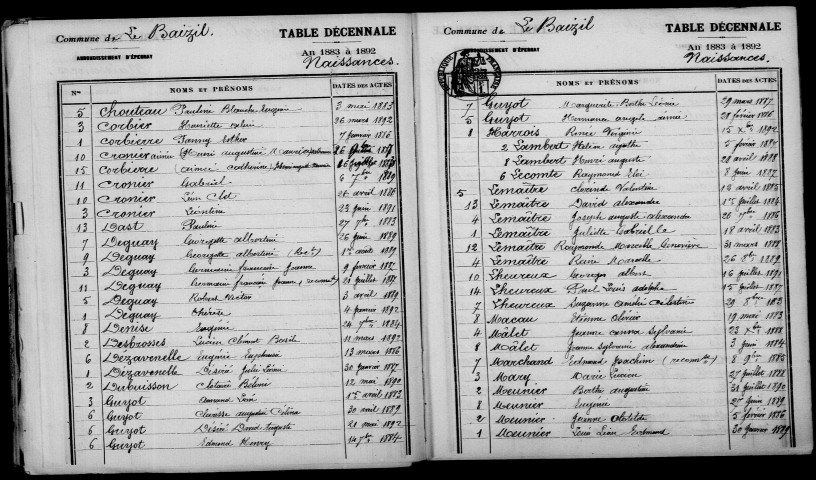 Commune de Le Baizil.
ARRONDISSEMENT D'ÉPERNAY
TABLE DÉCENNALE
An 1883 à 1892
Naissances.
Nos NOMS ET PRÉNOMS DATES DES ACTES
5 Chouteau Pauline Blanche 3 mai 1883
3 Corbier Henriette 26 mars 1892
1 Corbierre Fanny Esther 7 janvier 1886
10 Cronier Henri augustin 26
15 Corbierre (aimée catherine) juillet
11 Cronier Gabriel 6 7bre 1889
10 Cronier Léon Clot 26 avril 1886
3 Cronier Léontine 23 juin 1891
13 Dast Pauline 27 7bre 1883
7 Deguay Georgette albertine 26 juin 1889
9 Deguay Georgette albertine 1er août 1889
3 Deguay Germaine française jeanne 9 février 1887
11 Deguay Germaine française jeanne 28 juillet 1887
5 Deguay Robert Nestor 3 avril 1889
1 Deguay 4 janvier 1892
8 Denise Eugénie 24 7bre 1884
2 Desbrosses Lucien Clément Basile 11 mars 1892
6 Dézavenelle Eugénie Euphrasie 13 mars 1886
1 Dézavenelle Désiré Jules Léon 30 janvier 1887
2 Dubuisson 12 mai 1890
3 Guyot armand Léon 1er avril 1883
6 Guyot Clarisse augustine Célina 30 avril 1889
6 Guyot Désiré David Auguste 21 mai 1892
6 Guyot Edmond Henry 14 7bre 1884
Commune de Le Baizil.
ARRONDISSEMENT D'ÉPERNAY
TABLE DÉCENNALE
An 1883 à 1892
Naissances.
Nos NOMS ET PRÉNOMS DATES DES ACTES
7 Guyot Marguerite Berthe Léonie 29 mars 1887
5 Guyot Hermance angèle aimée 28 février 1886
8 Harrois Renée Virginie 15 Xbre 1892
2 Lambert Hélène agathe 5 février 1887
8 Lambert Henri auguste 28 avril 1888
6 Lecomte Raymond Eloi 8 juin 1887
5 Lemaître Clorinde Valentine 13 avril 1885
13 Lemaître David alexandre 1er juillet 1884
4 Lemaître Joseph auguste alexandre 26 7bre 1886
1 Lemaître Juliette Gabrielle 18 avril 1883
12 Lemaître Raymonde Marcelle Geneviève 31 mars 1888
4 Lemaître Marcelle 26 8bre 1889
10 Lheureux Georges albert 16 juillet 1891
14 Lheureux Paul Louis adolphe 15 juillet 1887
7 Lheureux Suzanne amélie célestine 29 1883
8 Macau Etienne Olivier 19 mai 1883
4 Mâlet Jeanne Sylvanie 23 Xbre 1888
8 Mâlet Jeanne Sylvanie alexandrine 3 juin 1884
7 Marchand Edmond Joachim 8 9bre 1885
3 Mary Marie 27 juillet 1888
2 Meunier Berthe augustine 31 juillet 1890
8 Meunier Eugénie 27 juin 1889
2 Meunier Jeanne Clotilde 5 février 1886
1 Meunier Louis Léon Edmond 30 janvier 1889